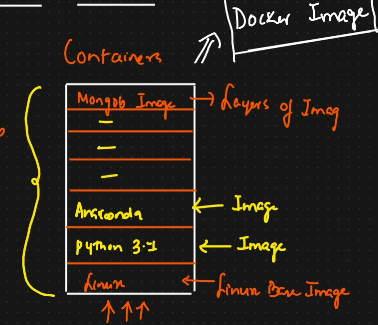 Docker Image
Containers
Mongob Image → Layers of Imag
Anaconda ← Image
Python 3.7 ← Image
Linux ← Linux Base Image